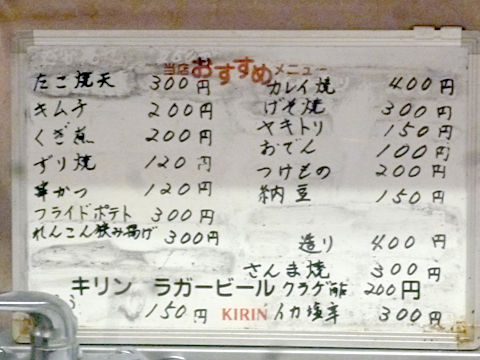 当店おすすめメニュー
たこ焼天 300円
キムチ 200円
くぎ煮 200円
ずり焼 120円
串かつ 120円
フライドポテト 300円
れんこん挟み揚げ 300円
カレイ焼 400円
げそ焼 300円
ヤキトリ 150円
おでん 100円
つけもの 200円
納豆 150円
造り 400円
さんま焼 300円
キリン ラガービール
クラゲ酢 200円
150円
KIRIN
イカ塩辛 300円